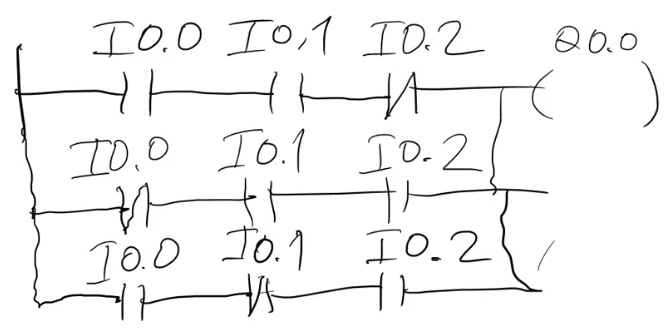 I0.0 I0.1 I0.2 Q0.0
I0.0 I0.1 I0.2
I0.0 I0.1 I0.2